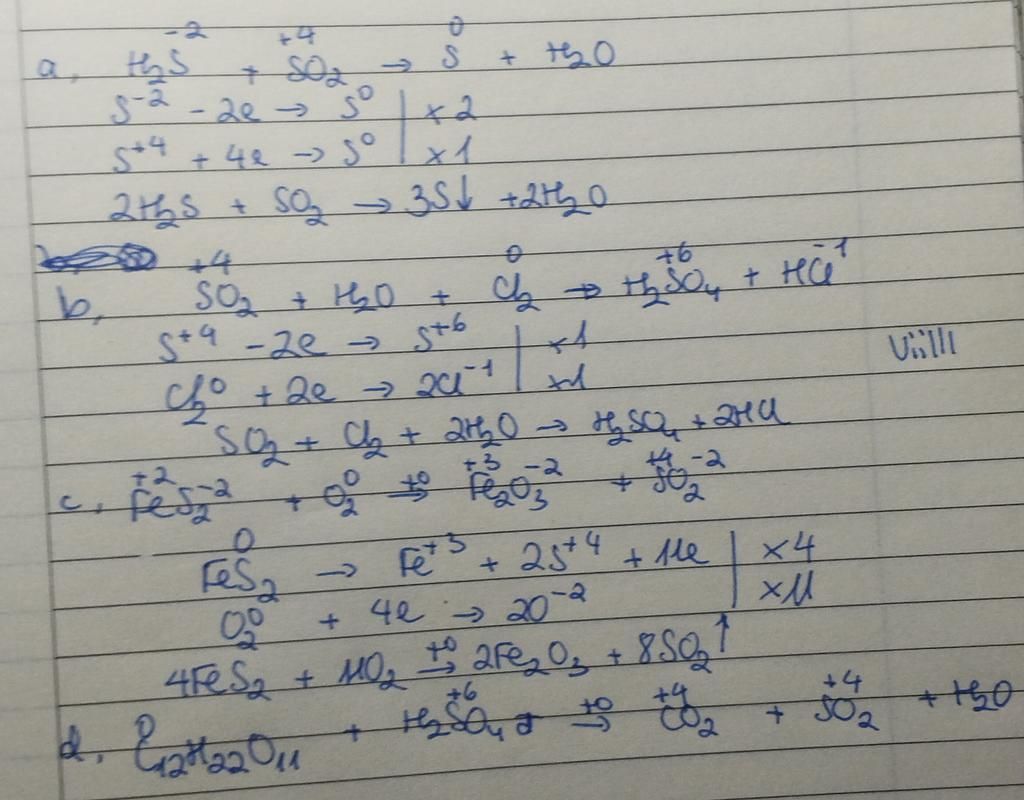 a, H₂S⁻² + S⁺⁴O₂ → S⁰ + H₂O
S⁻² - 2e → S⁰ | x2
S⁺⁴ + 4e → S⁰ | x1
2H₂S + SO₂ → 3S↓ + 2H₂O
b, S⁺⁴O₂ + H₂O + Cl₂⁰ → H₂S⁺⁶O₄ + HCl⁻¹
S⁺⁴ - 2e → S⁺⁶ | x1
Cl₂⁰ + 2e → 2Cl⁻¹ | x1
SO₂ + Cl₂ + 2H₂O → H₂SO₄ + 2HCl
c, Fe⁺²S₂⁻² + O₂⁰ →t⁰ Fe₂⁺³O₃⁻² + S⁺⁴O₂⁻²
FeS₂⁰ → Fe⁺³ + 2S⁺⁴ + 11e | x4
O₂⁰ + 4e → 2O⁻² | x11
4FeS₂ + 11O₂ →t⁰ 2Fe₂O₃ + 8SO₂↑
d, C₁₂⁰H₂₂O₁₁ + H₂S⁺⁶O₄ đ →t⁰ C⁺⁴O₂ + S⁺⁴O₂ + H₂O